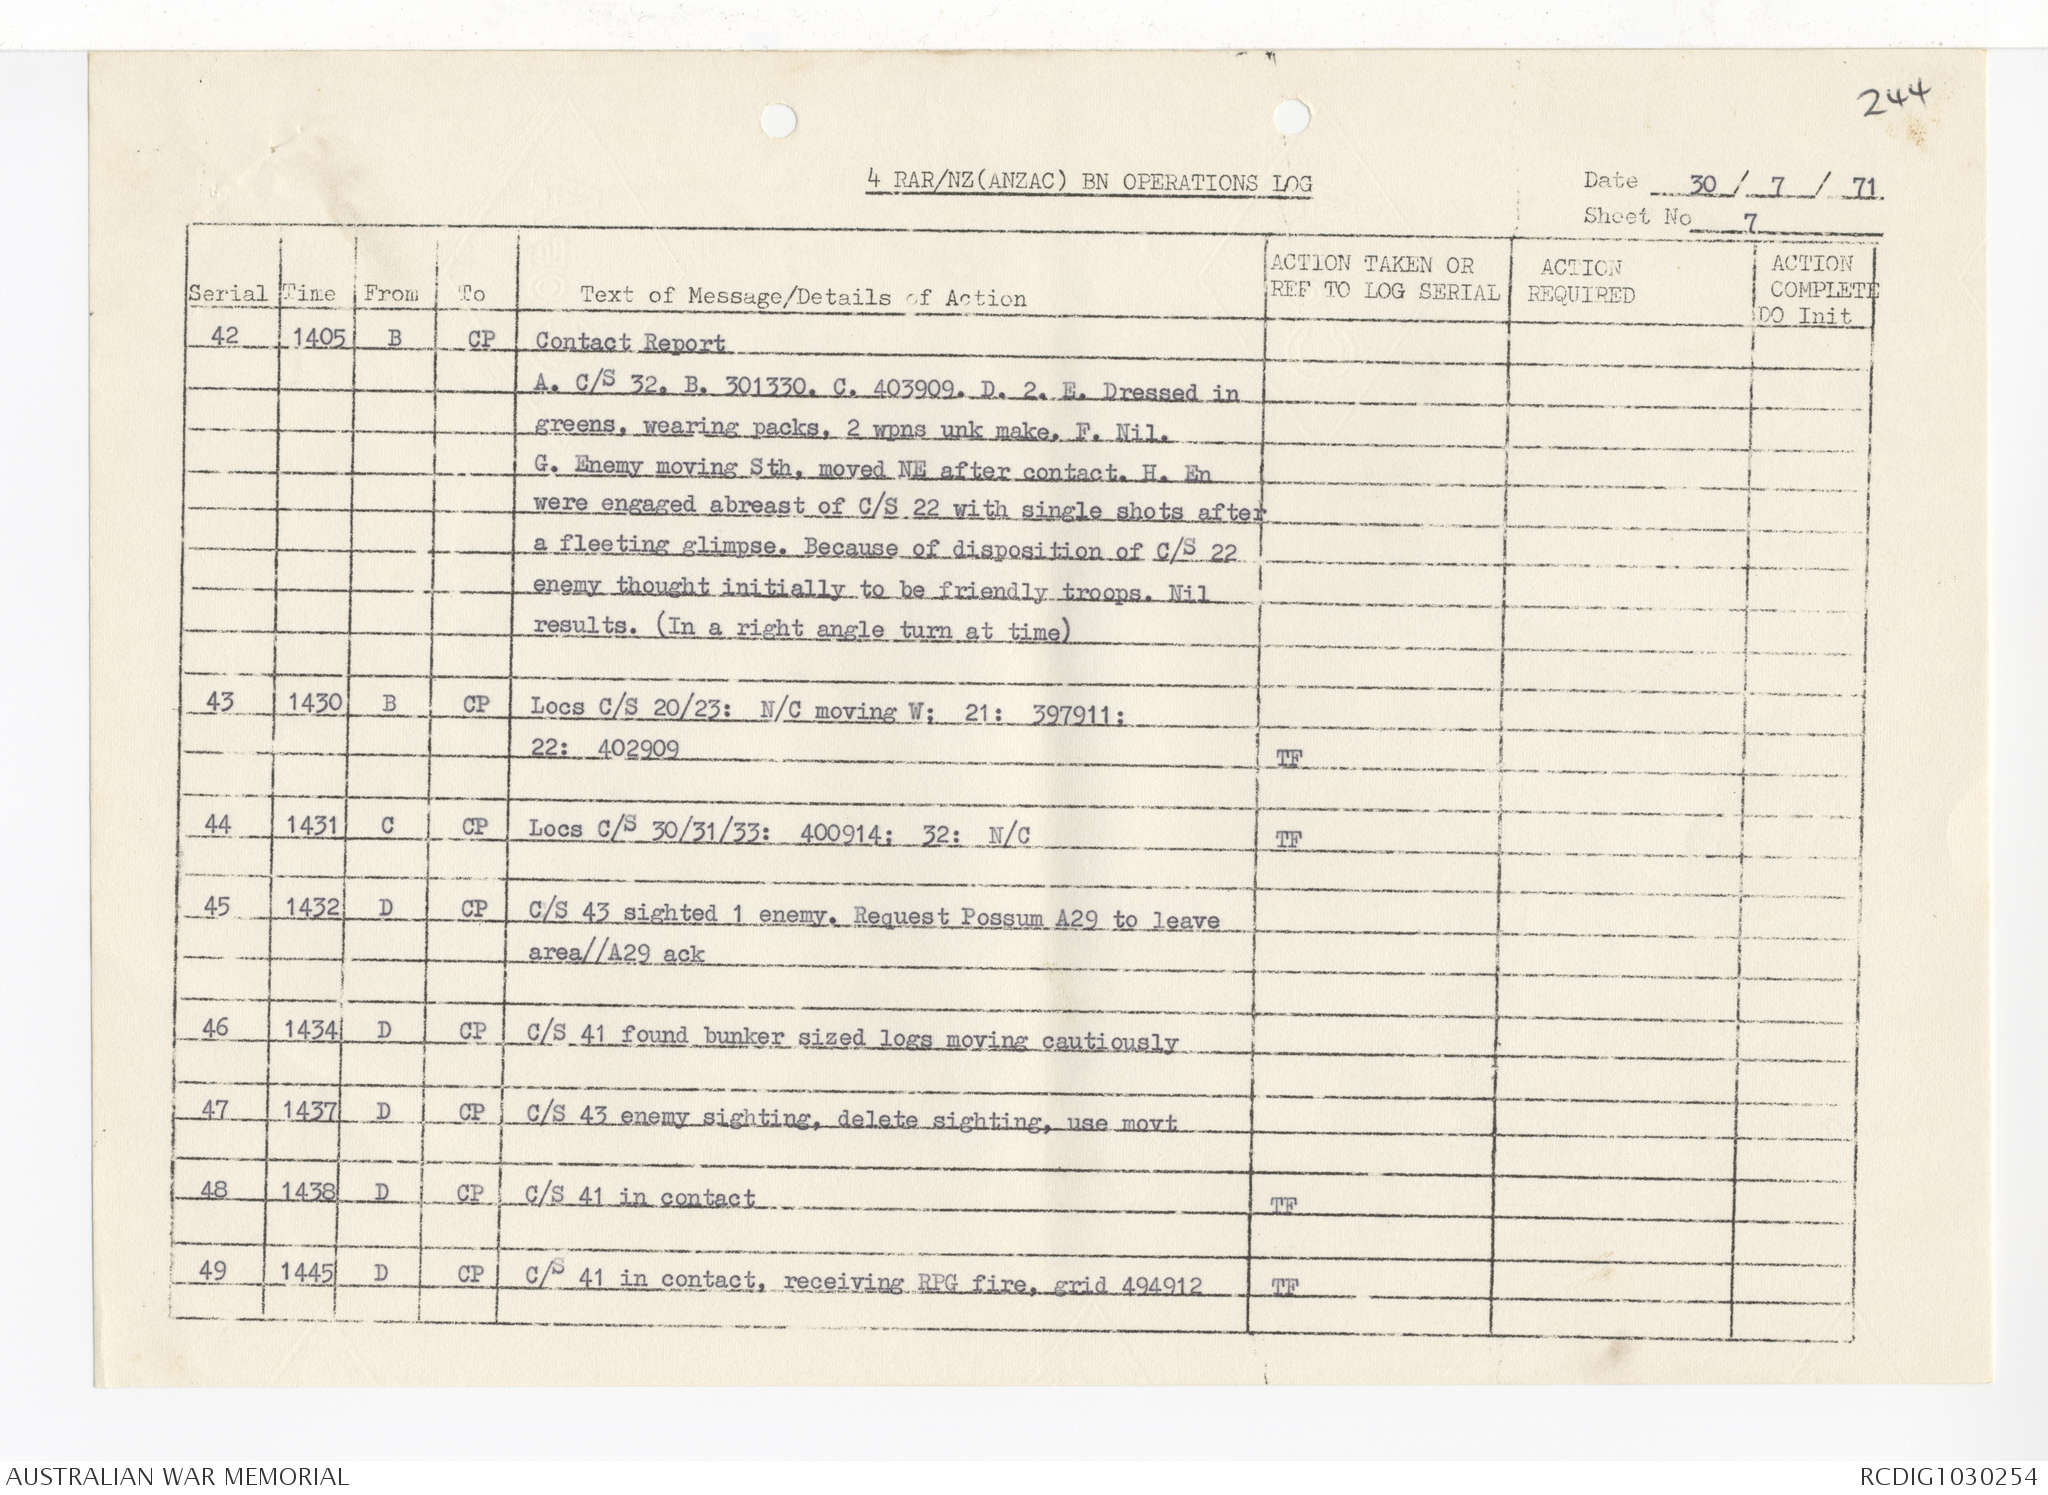 244
4 RAR/NZ(ANZAC) BN OPERATIONS LOG
Date 30 / 7 / 71
Sheet No 7
Serial Time From To Text of Message/Details of Action ACTION TAKEN OR REF TO LOG SERIAL ACTION REQUIRED ACTION COMPLETE DO Init
42 1405 B CP Contact Report
A. C/S 32. B. 301330. C. 403909. D. 2. E. Dressed in
greens, wearing packs, 2 wpns unk make. F. Nil.
G. Enemy moving Sth, moved NE after contact. H. En
were engaged abreast of C/S 22 with single shots after
a fleeting glimpse. Because of disposition of C/S 22
enemy thought initially to be friendly troops. Nil
results. (In a right angle turn at time)
43 1430 B CP Locs C/S 20/23: N/C moving W; 21: 397911;
22: 402909 TF
44 1431 C CP Locs C/S 30/31/33: 400914; 32: N/C TF
45 1432 D CP C/S 43 sighted 1 enemy. Request Possum A29 to leave
area//A29 ack
46 1434 D CP C/S 41 found bunker sized logs moving cautiously
47 1437 D CP C/S 43 enemy sighting, delete sighting, use movt
48 1438 D CP C/S 41 in contact TF
49 1445 D CP C/S 41 in contact, receiving RPG fire, grid 494912 TF
AUSTRALIAN WAR MEMORIAL
RCDIG1030254